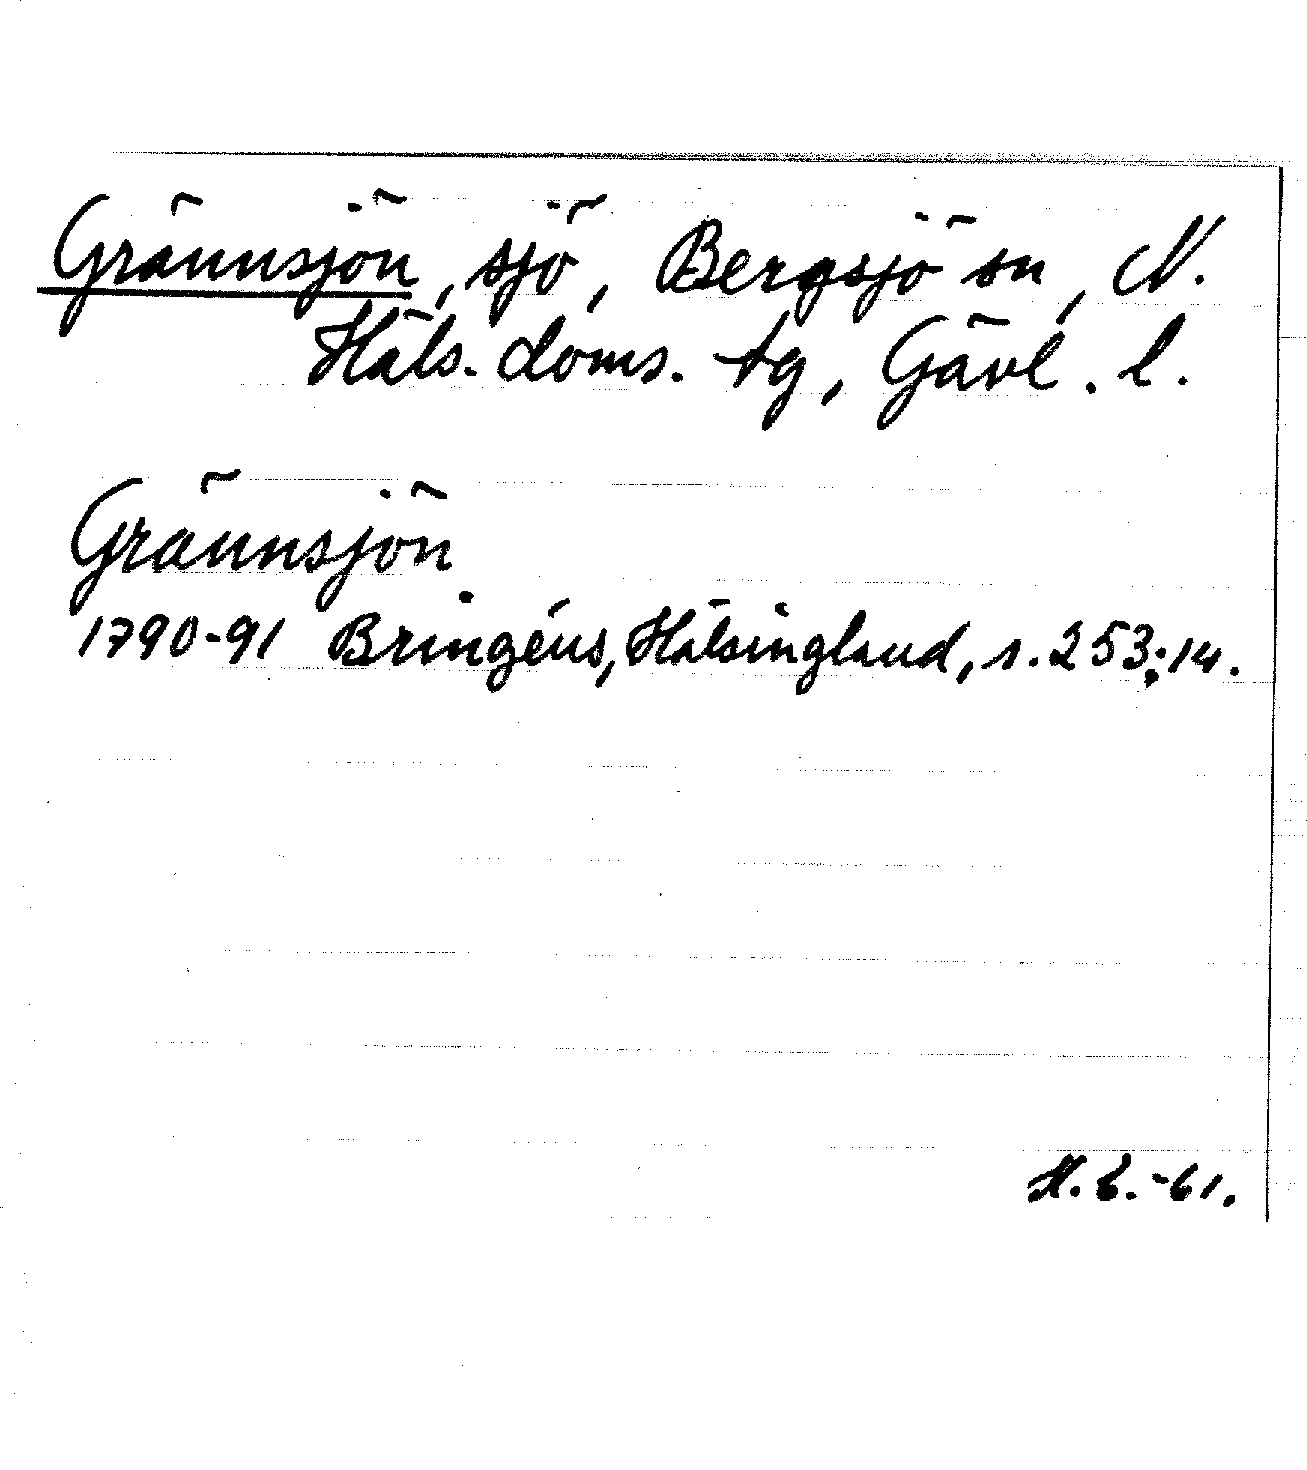 Grännsjön, sjö, Bergsjö sn, N.
Häls. doms. tg, Gävl. l.
Grännsjön
1790-91 Bringéus, Hälsingland, s. 253:14.
-61.